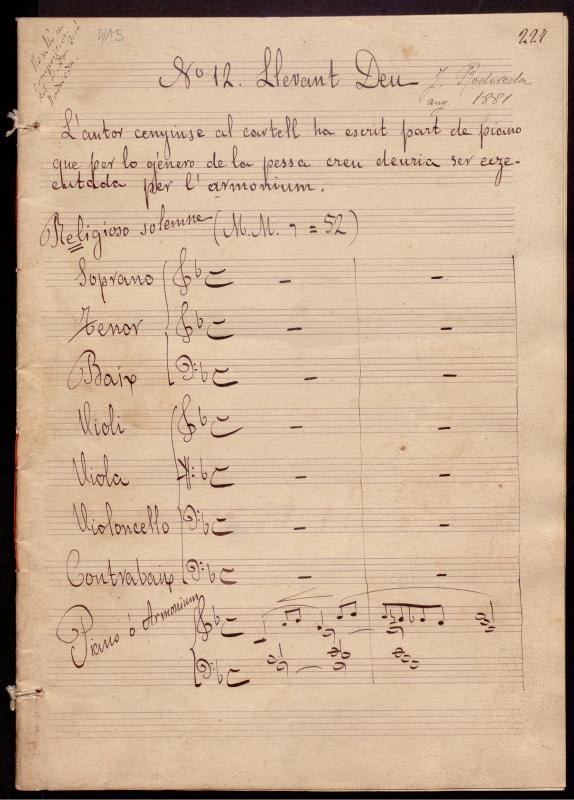 D/15
227
Nº 12. Llevant Deu
J. Rodoreda
any 1881
L'autor cenyinse al cartell ha escrit part de piano
que per lo género de la pessa creu deuria ser eze-
cutada per l'armonium.
Religioso solemne (M.M. = 52)
Soprano
Tenor
Baix
Violi
Viola
Violoncello
Contrabaix
Piano ó Armonium